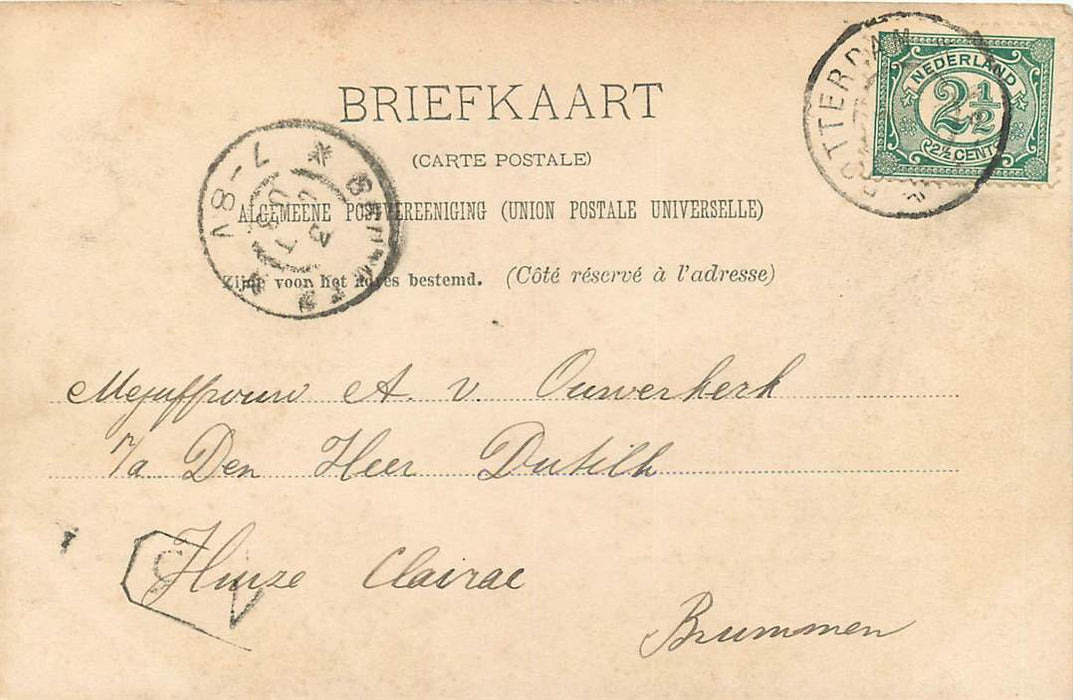 BRIEFKAART
(CARTE POSTALE)
ALGEMEENE POSTVEREENIGING (UNION POSTALE UNIVERSELLE)
Zijde voor het adres bestemd. (Côté réservé à l'adresse)
ROTTERDAM
NEDERLAND
2½
2½ CENT
7-8V
Mejuffrouw A. v. Ouwerkerk
p/a Den Heer Dutilh
Huize Clairac
Brummen